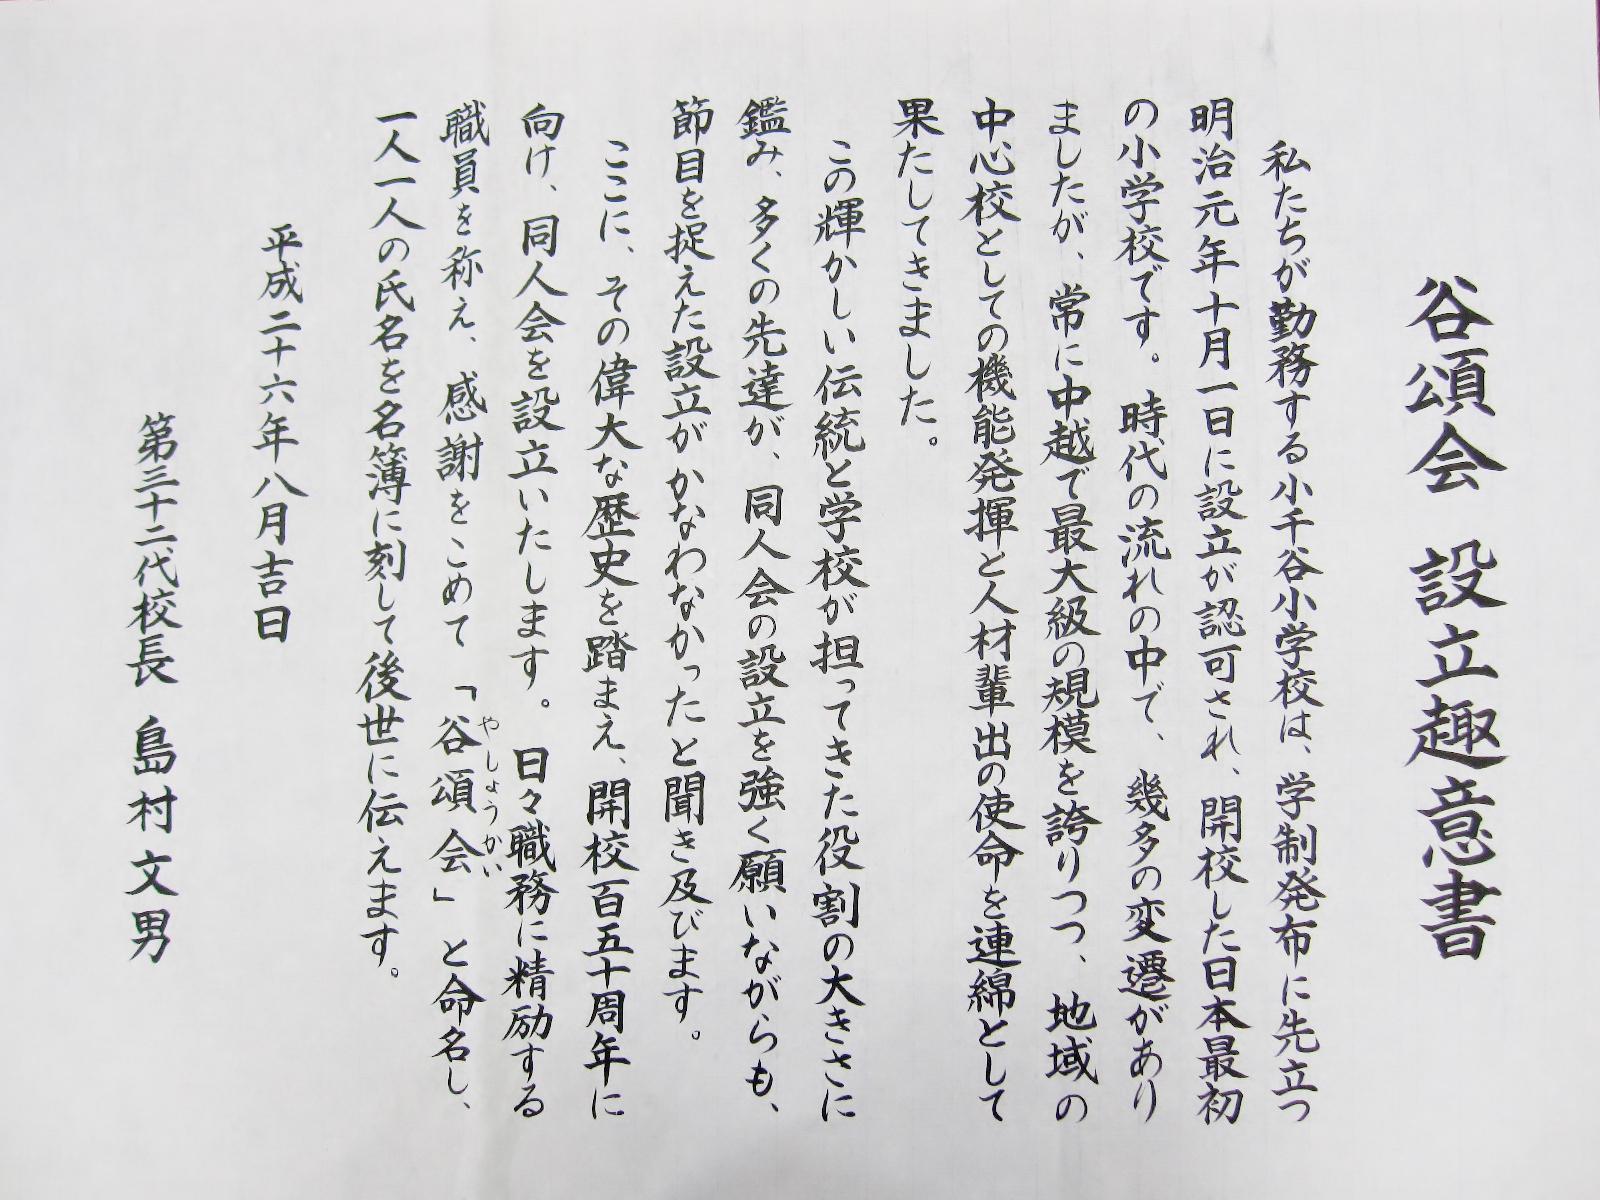 谷頌会 設立趣意書
私たちが勤務する小千谷小学校は、学制発布に先立つ
明治元年十月一日に設立が認可され、開校した日本最初
の小学校です。時代の流れの中で、幾多の変遷があり
ましたが、常に中越で最大級の規模を誇りつつ、地域の
中心校としての機能発揮と人材輩出の使命を連綿として
果たしてきました。
この輝かしい伝統と学校が担ってきた役割の大きさに
鑑み、多くの先達が、同人会の設立を強く願いながらも、
節目を捉えた設立がかなわなかったと聞き及びます。
ここに、その偉大な歴史を踏まえ、開校百五十周年に
向け、同人会を設立いたします。日々職務に精励する
職員を称え、感謝をこめて「谷頌会」と命名し、
やしょうかい
一人一人の氏名を名簿に刻して後世に伝えます。
平成二十六年八月吉日
第三十二代校長 島村文男